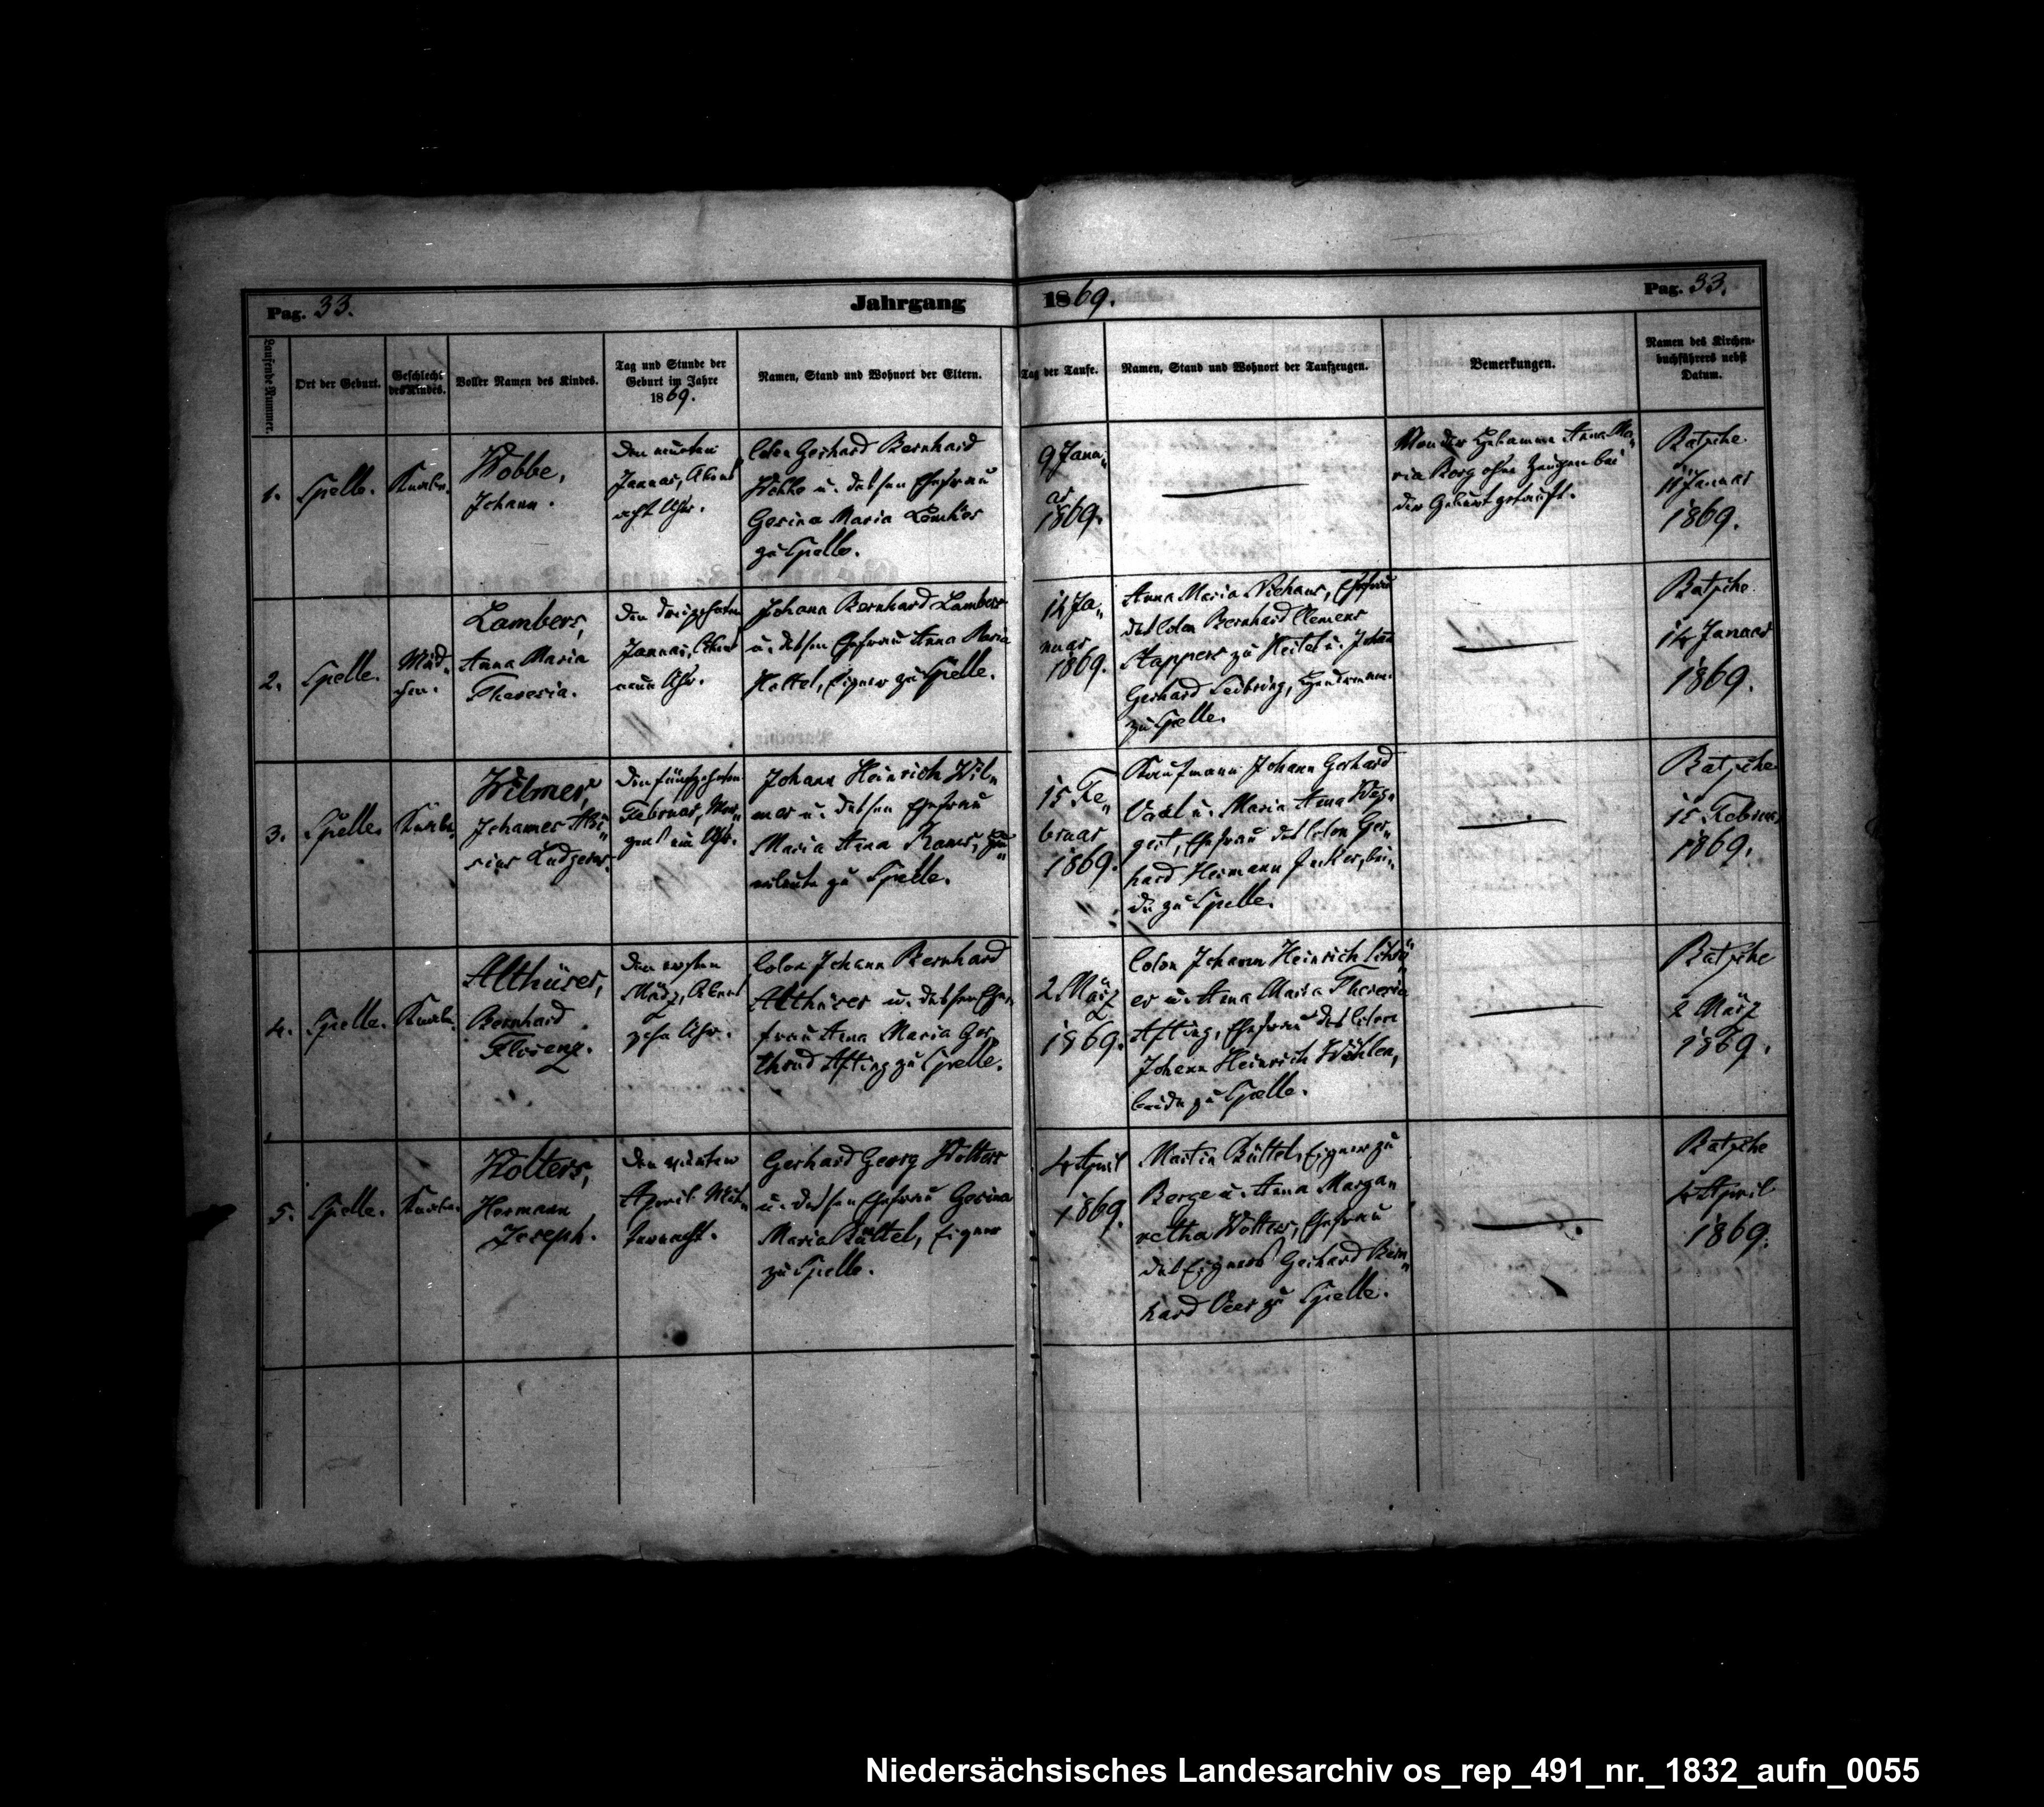 Pag. 33.
Jahrgang 1869.
Pag. 33.
Laufende Nummer.
Ort der Geburt.
Geschlecht
des Kindes.
Voller Namen des Kindes.
Tag und Stunde der
Geburt im Jahre
1869.
Namen, Stand und Wohnort der Eltern.
Tag der Taufe.
Namen, Stand und Wohnort der Taufzeugen.
Bemerkungen.
Namen des Kirchen-
buchführers nebst
Datum.
1.
Spelle.
Knabe.
Wobbe,
Johann.
Den neunten
Januar, Abends
acht Uhr.
Colon Gerhard Bernhard
Wobbe u. dessen Ehefrau
Gesina Maria
zu Spelle.
9 Janu„
ar
1869.
Von der Hebamme Anna Ma„
ria Borg ohne Zeugen bei
der Geburt getauft.
Batsche
11 Januar
1869.
2.
Spelle.
Mäd„
chen.
Lambers,
Anna Maria
Theresia.
Den dreizehnten
Januar, Abends
neun Uhr.
Johann Bernhard Lambers
u. dessen Ehefrau Anna Maria
Hottel, Eigner zu Spelle.
14 Ja„
nuar
1869.
Anna Maria Niehaus, Ehefrau
des Colon Bernhard Clemens
Stappers zu Heitel u. Johann
Gerhard
zu Spelle.
Batsche
14 Januar
1869.
3.
Spelle.
Knabe.
Wilmes,
Johannes Aloi„
sius Ludgerus.
Den fünfzehnten
Februar, Mor„
gens ein Uhr.
Johann Heinrich Wil„
mes u. dessen Ehefrau
Maria Anna
zu Spelle.
15 Fe„
bruar
1869.
Kaufmann Johann Gerhard
u. Maria Anna
Ehefrau des Colon Ger„
hard Hermann bei„
de zu Spelle.
Batsche
15 Februar
1869.
4.
Spelle.
Knabe.
Althüser,
Bernhard
Florenz.
Den ersten
März, Abends
zehn Uhr.
Colon Johann Bernhard
Althüser u. dessen Ehe„
frau Anna Maria Ger„
thrud Afting zu Spelle.
2 März
1869.
Colon Johann Heinrich
u. Anna Maria Theresia
Afting, Ehefrau des Colon
Johann Heinrich
beide zu Spelle.
Batsche
2 März
1869.
5.
Spelle.
Knabe.
Wolters,
Hermann
Joseph.
Den vierten
April Mit„
ternacht.
Gerhard Georg Wolters
u. dessen Ehefrau Gesina
Maria Büttel, Eigner
zu Spelle.
4 April
1869.
Martin Büttel, Eigner zu
Berge u. Anna Marga„
retha Wolters, Ehefrau
des Eigners Gerhard Bern„
hard Veer zu Spelle.
Batsche
4 April
1869.
Niedersächsisches Landesarchiv os_rep_491_nr._1832_aufn_0055